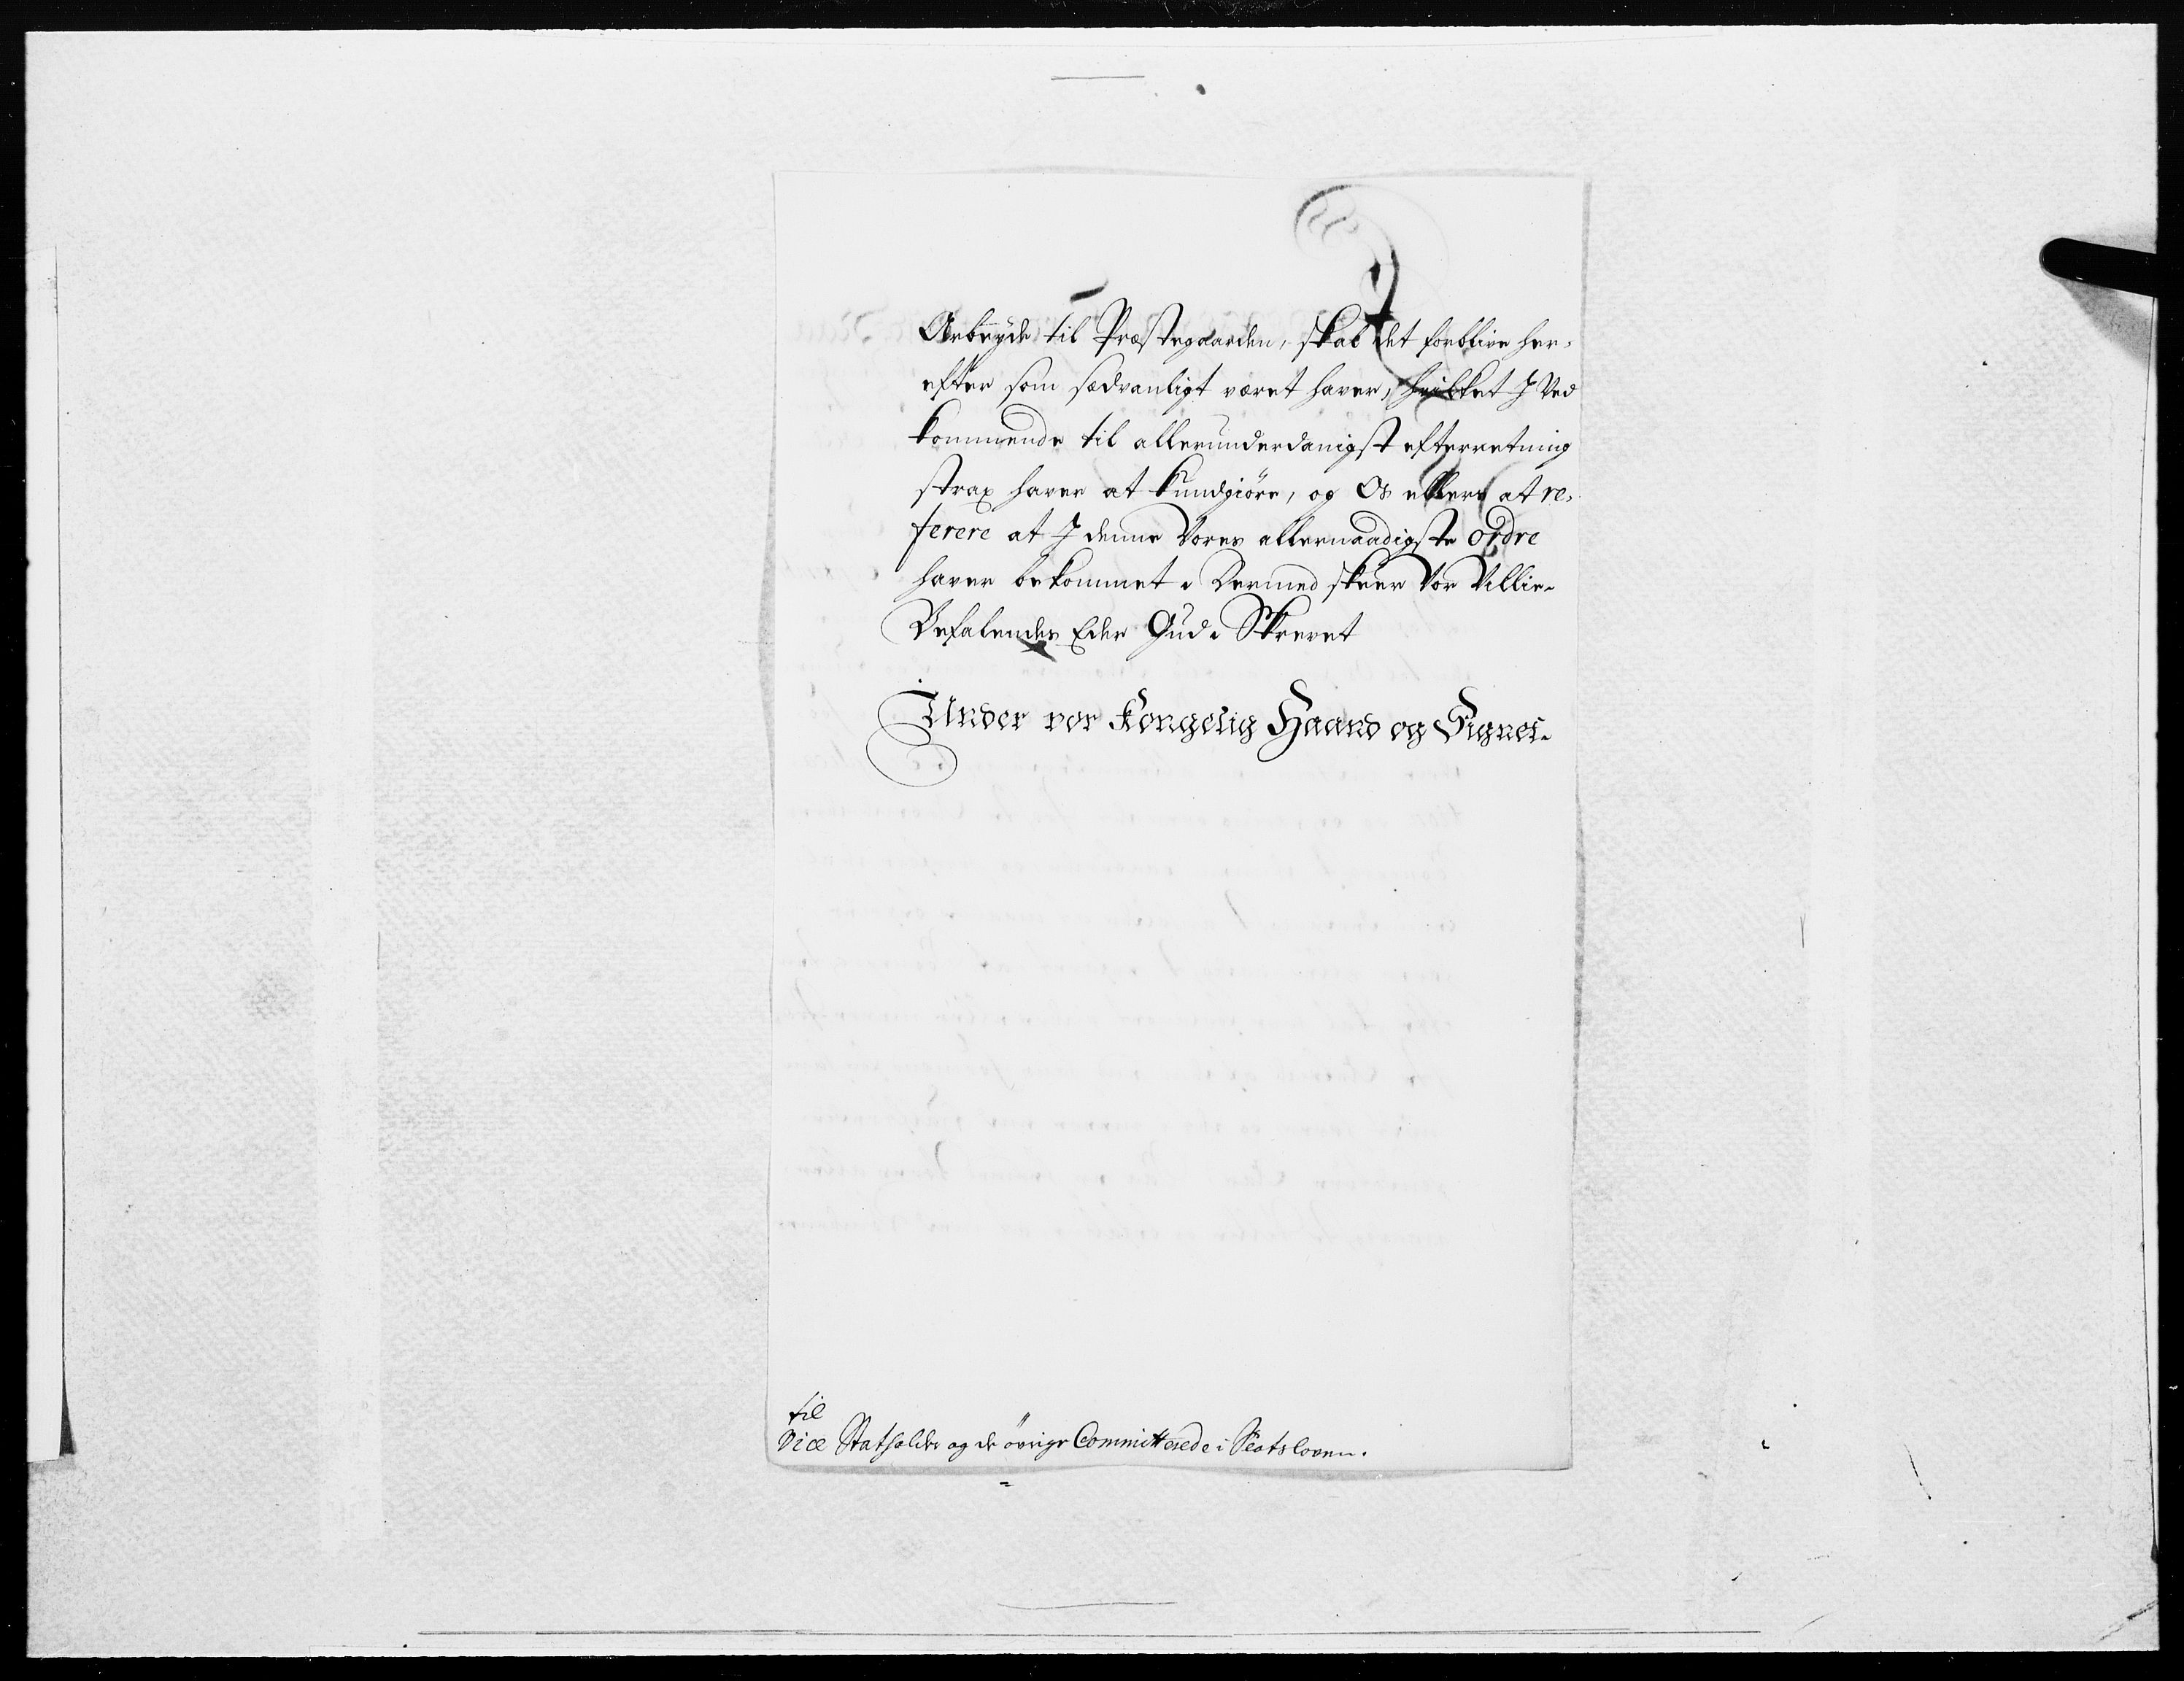 Arbeyde til Præstegaarden, skal det forblive her-
efter som sædvanligt været haver, hvilket I Ved
kommende til allerunderdanigst efterretning
strax haver at kundgiöre, og Os ellers at re-
ferere at I denne Vores allernaadigste ordre
haver bekommet. Dermed skeer Vor Villie.
Befalendes Eder Gud. Skrevet
Under vor Kongelig Haand og Signet.
til
Vice Statholder og de øvrige Committerede i Slotsloven.